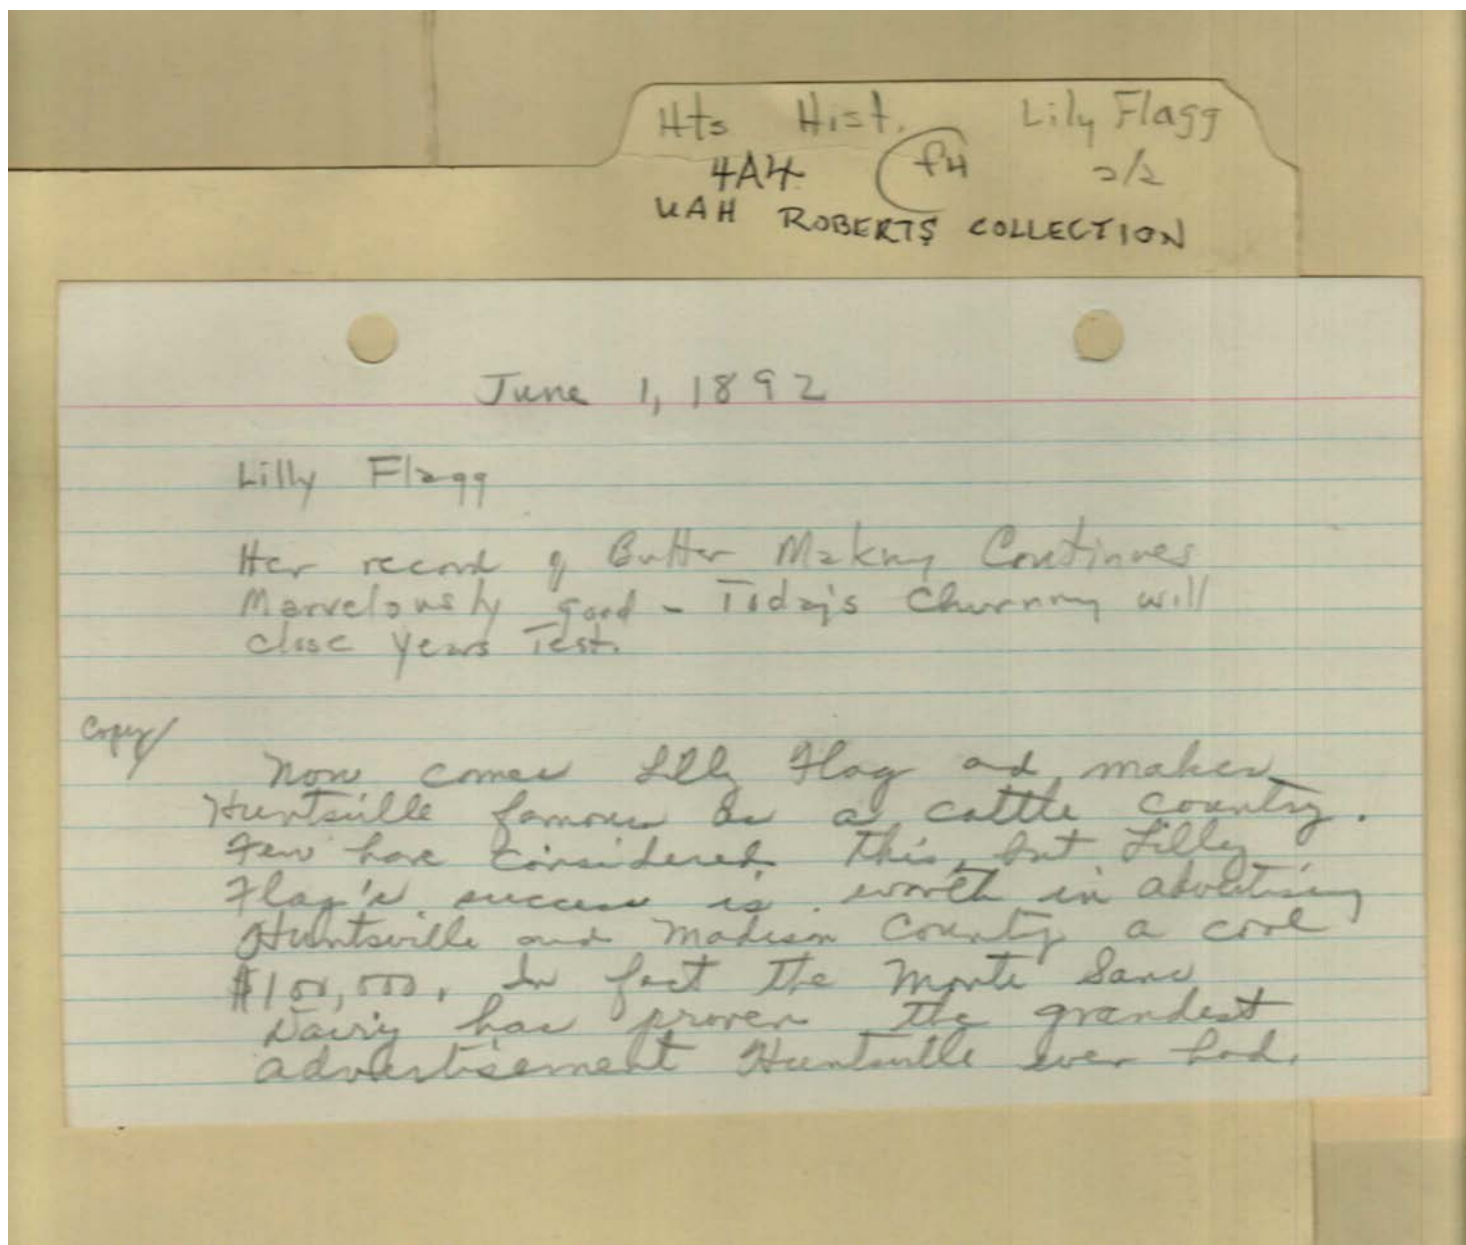 Hts Hist. Lily Flagg
4A4 f4 2/2
UAH ROBERTS COLLECTION
June 1, 1892
Lilly Flagg
Her record of Butter Making Continues
Marvelously good - Today's Churning will
close years Test.
Copy/
Now comes Lilly Flag and makes
Huntsville famous as a cattle country.
Few have considered this, but Lilly
Flag's success is worth in advertising
Huntsville and Madison County a cool
$100,000. In fact the Monte Sano
Dairy has proven the grandest
advertisement Huntsville ever had.